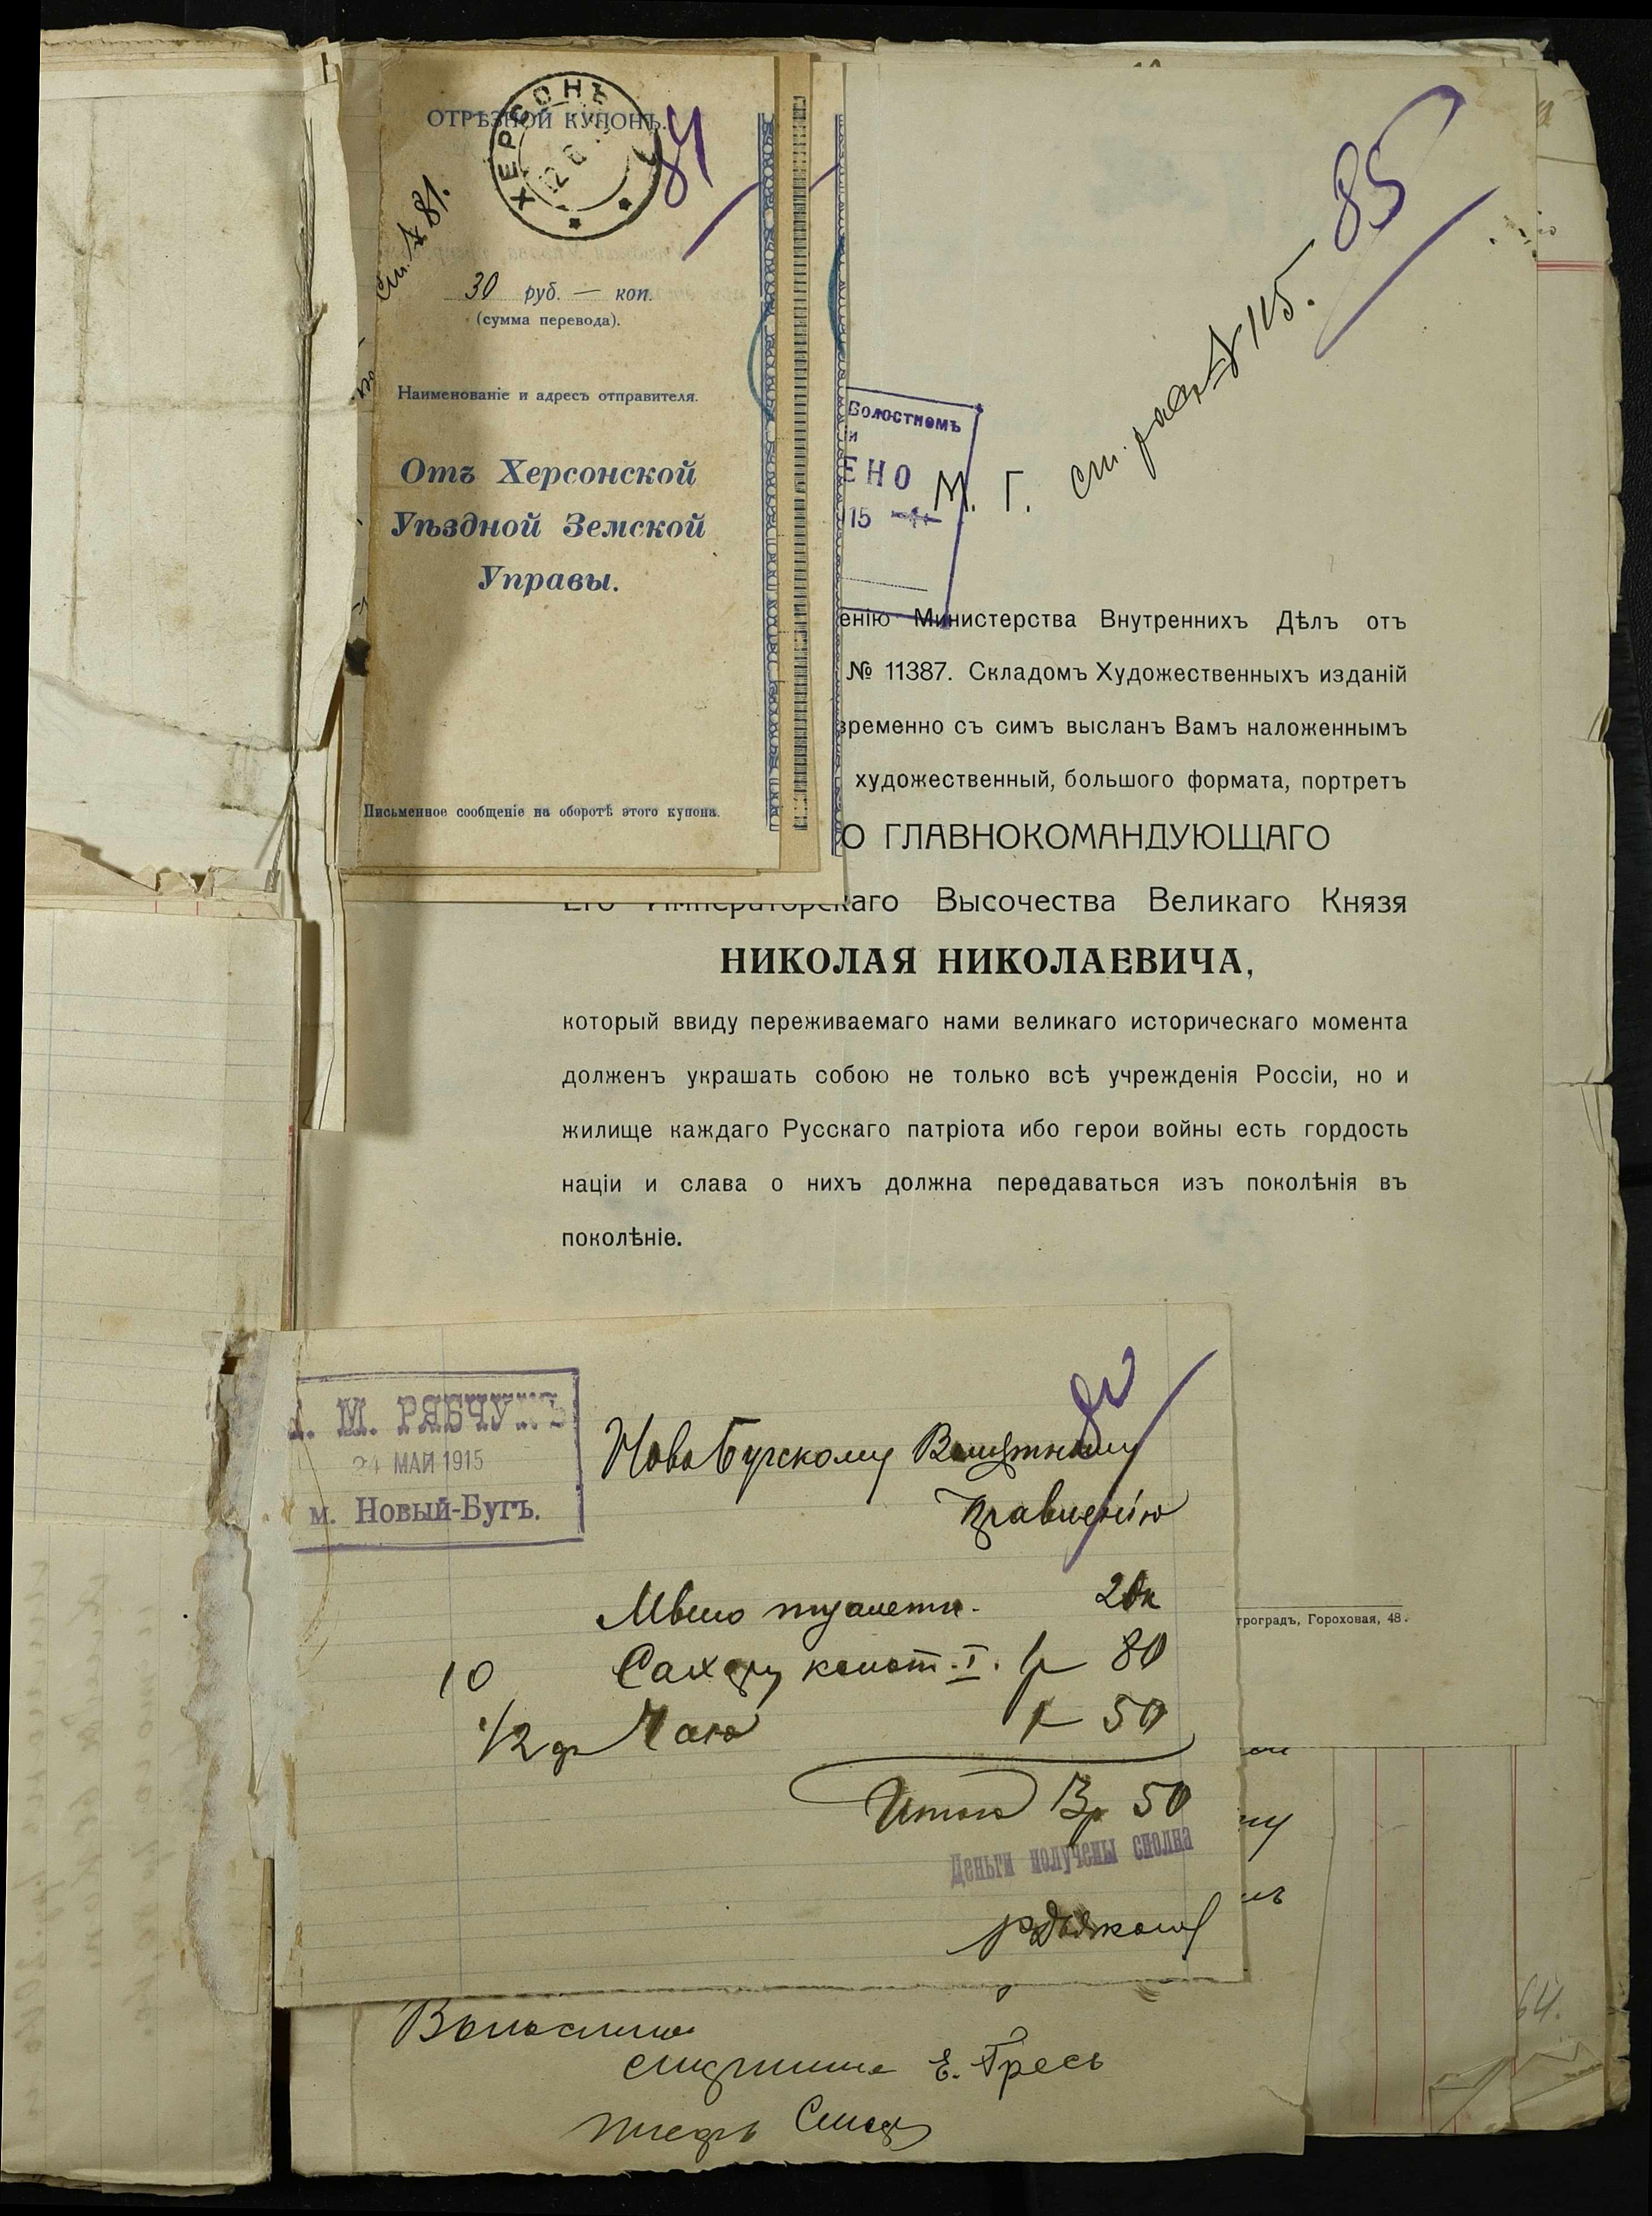 ОТРѢЗНОЙ КУПОНЪ.
ХЕРСОНЪ
84
ст. № 81.
30 руб. — коп.
(сумма перевода).
Наименованіе и адресъ отправителя.
Отъ Херсонской
Уѣздной Земской
Управы.
Письменное сообщеніе на оборотѣ этого купона.
85
Волостномъ
и
ЕНО
15
М. Г.
115.
енію Министерства Внутреннихъ Дѣлъ отъ
№ 11387. Складомъ Художественныхъ изданій
временно съ симъ высланъ Вамъ наложеннымъ
художественный, большого формата, портретъ
О ГЛАВНОКОМАНДУЮЩАГО
Его Императорскаго Высочества Великаго Князя
НИКОЛАЯ НИКОЛАЕВИЧА,
который ввиду переживаемаго нами великаго историческаго момента
долженъ украшать собою не только всѣ учрежденія Россіи, но и
жилище каждаго Русскаго патріота ибо герои войны есть гордость
націи и слава о нихъ должна передаваться изъ поколѣнія въ
поколѣніе.
троградъ, Гороховая, 48.
М. РЯБЧУКЪ
24 МАЙ 1915
м. Новый-Бугъ.
Ново Бугскому Волостному
Правленію
Мыло туалетн. 20к
10 Сахару колот. I. 1р 80
1/2 Чаю 1р 50
Итого 3р 50
Деньги получены сполна
64.